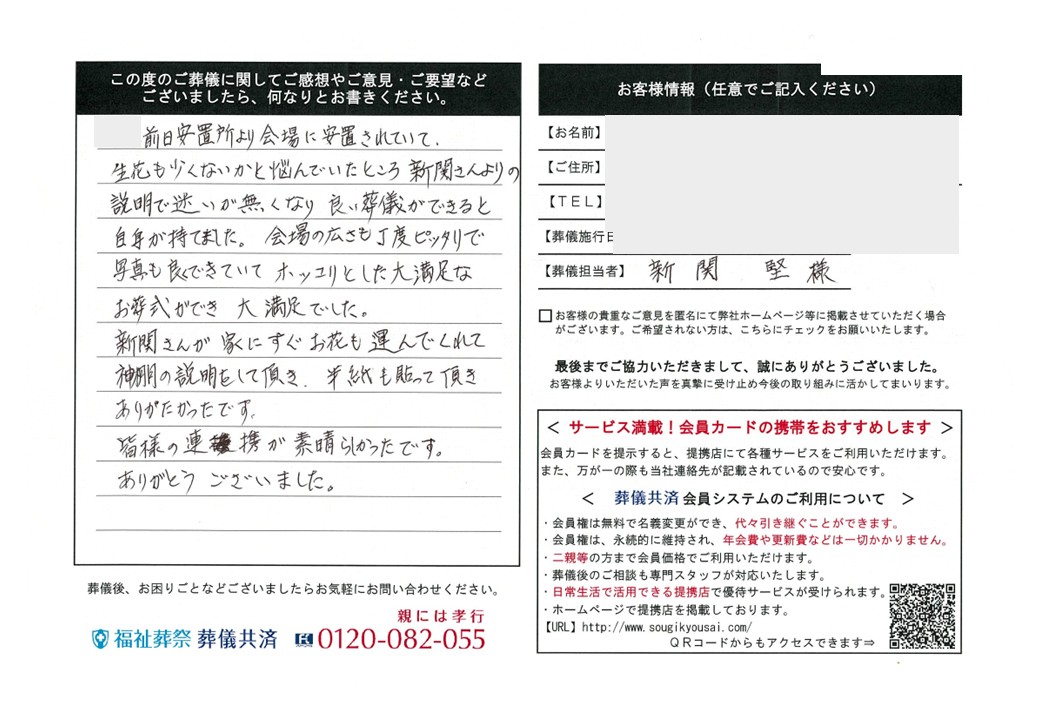 この度のご葬儀に関してご感想やご意見・ご要望など
ございましたら、何なりとお書きください。
前日安置所より会場に安置されていて、
生花も少くないかと悩んでいたところ 新関さんよりの
説明で迷いが無くなり 良い葬儀ができると
自身が持てました。会場の広さも丁度ピッタリで
写真も良くできていて ホッコリとした大満足な
お葬式ができ 大満足でした。
新関さんが 家にすぐお花も運んでくれて
神棚の説明をして頂き、半紙も貼って頂き
ありがたかったです。
皆様の連携が素晴らしかったです。
ありがとうございました。
葬儀後、お困りごとなどございましたらお気軽にお問い合わせください。
親には孝行
福祉葬祭 葬儀共済 0120-082-055
お客様情報（任意でご記入ください）
【お名前】
【ご住所】
【ＴＥＬ】
【葬儀施行日
【葬儀担当者】 新関 堅様
□お客様の貴重なご意見を匿名にて弊社ホームページ等に掲載させていただく場合
がございます。ご希望されない方は、こちらにチェックをお願いいたします。
最後までご協力いただきまして、誠にありがとうございました。
お客様よりいただいた声を真摯に受け止め今後の取り組みに活かしてまいります。
＜ サービス満載！会員カードの携帯をおすすめします ＞
会員カードを提示すると、提携店にて各種サービスをご利用いただけます。
また、万が一の際も当社連絡先が記載されているので安心です。
＜ 葬儀共済会員システムのご利用について ＞
・会員権は無料で名義変更ができ、代々引き継ぐことができます。
・会員権は、永続的に維持され、年会費や更新費などは一切かかりません。
・二親等の方まで会員価格でご利用いただけます。
・葬儀後のご相談も専門スタッフが対応いたします。
・日常生活で活用できる提携店で優待サービスが受けられます。
・ホームページで提携店を掲載しております。
【URL】http://www.sougikyousai.com/
ＱＲコードからもアクセスできます⇒